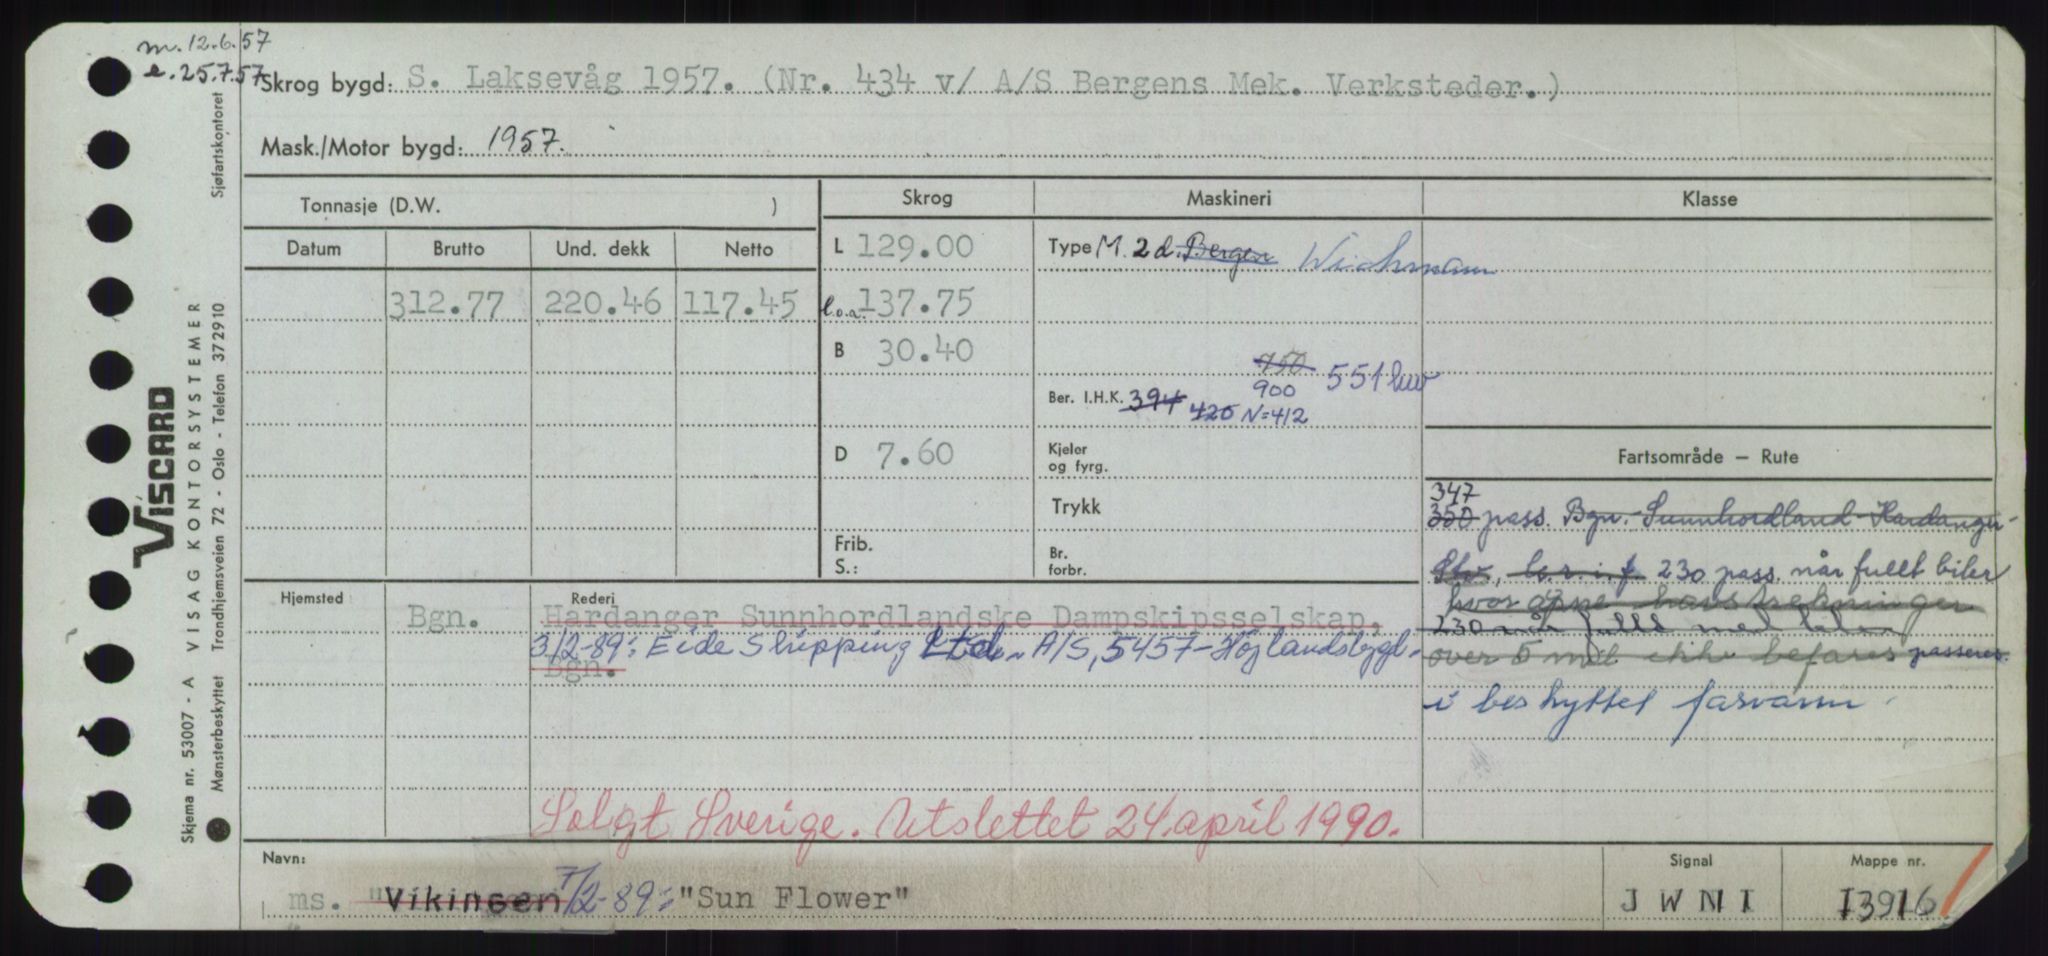 m. 12.6.57
e. 25.7.57
Skrog bygd: S. Laksevåg 1957. (Nr. 434 v/ A/S Bergens Mek. Verksteder.)
Mask./Motor bygd: 1957.
Tonnasje (D.W. )
Skrog
Maskineri
Klasse
Datum Brutto Und. dekk Netto
312.77 220.46 117.45
L 129.00
l.o.a. 137.75
B 30.40
D 7.60
Frib.
S.:
Type M. 2 d. Bergen Wichmann
750
900 551 kw
Ber. I.H.K. 394 420 N=412
Kjeler
og fyrg.
Trykk
Br.
forbr.
Fartsområde — Rute
347
350 pass. Bgn.-Sunnhordland-Hardanger-
Stv., b.r.i.f. 230 pass. når fullt biler
hvor åpne havstrekninger
230 når fullt med biler
over 5 mil ikke befares passeres.
i beskyttet farvann.
Hjemsted
Rederi
Bgn. Hardanger Sunnhordlandske Dampskipsselskap,
3/2-89: Eide Shipping Ltd. A/S, 5457-Höjlandsbygd.
Bgn.
Solgt Sverige. Utslettet 24. april 1990.
Navn:
ms. "Vikingen 7/2-89: "Sun Flower"
Signal
J W N I
Mappe nr.
13916
VISCARD
VISAG KONTORSYSTEMER
Skjema nr. 53007 - A
Mønsterbeskyttet Trondhjemsveien 72 - Oslo - Telefon 372910
Sjøfartskontoret